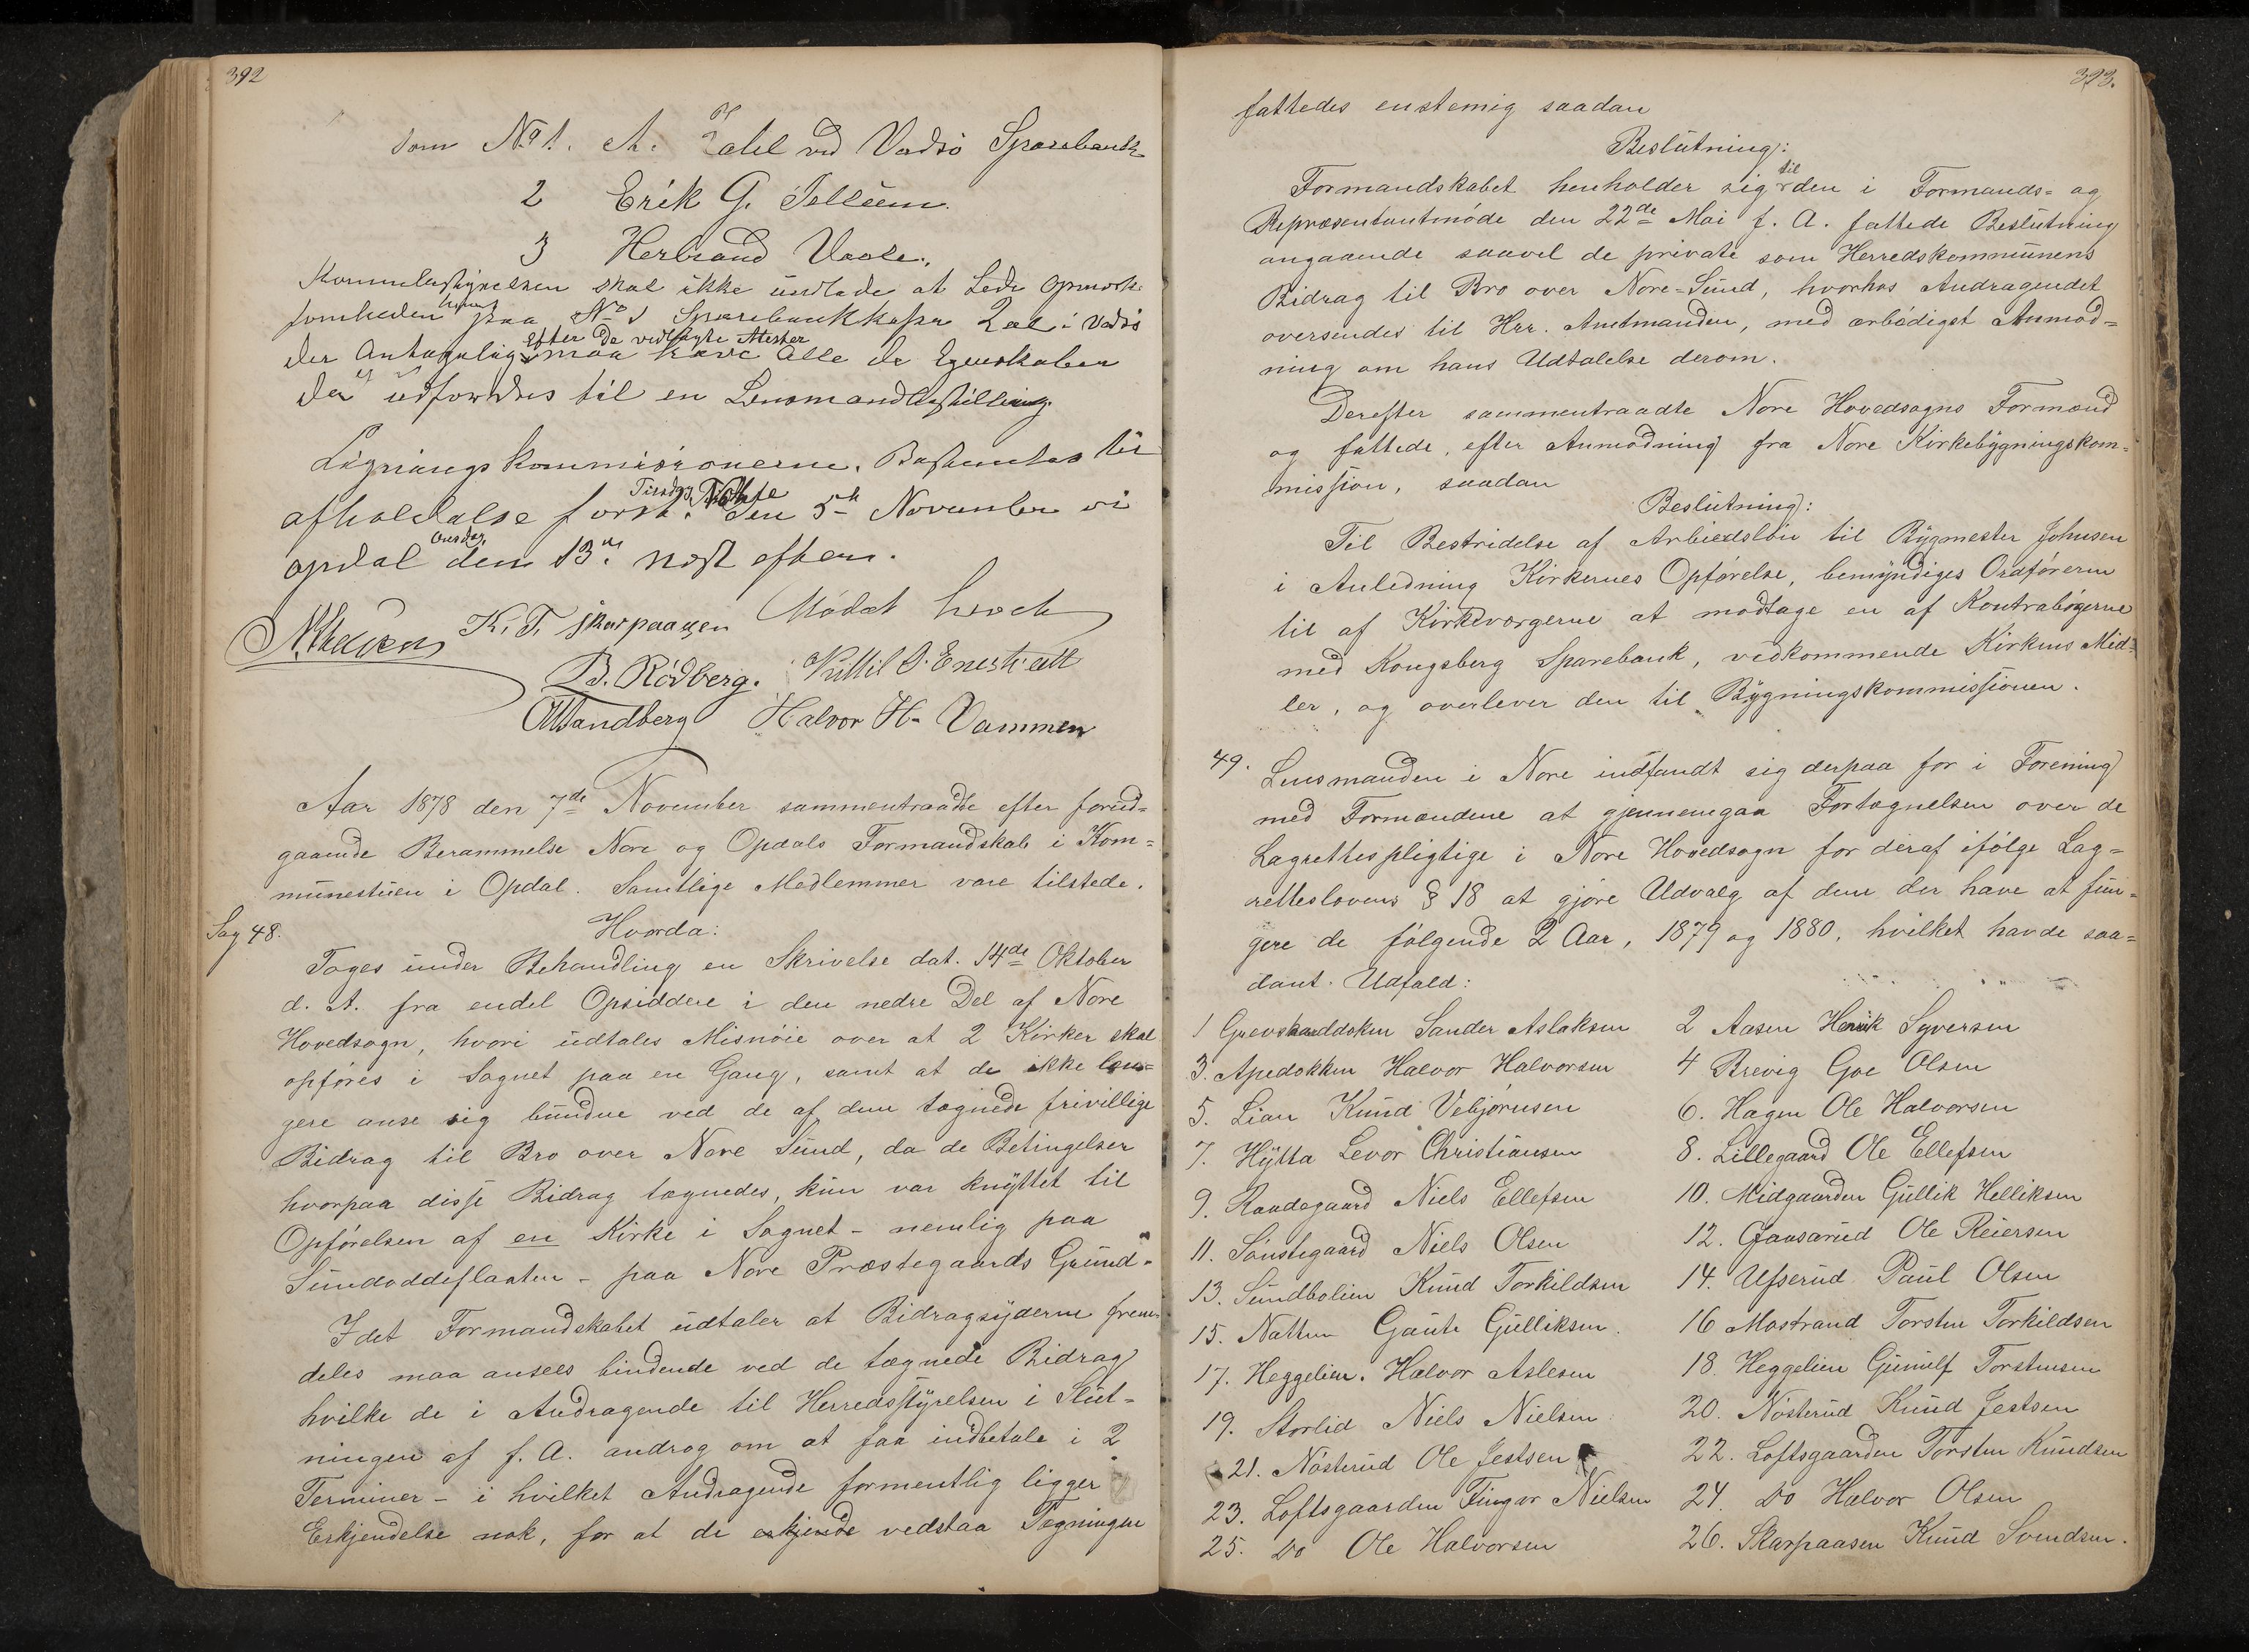 392
som No 1. A. Zahl ved Vadsö Sparebank
2 Erik G. Tellum.
3 Herbrand Vaale.
skal ikke undlade at Lede Opmærk-
somheden paa No 1 Sparebankkasser Zal i Vadsö
Efter de vedlagte Atester
der Antagelig maa have alle de Egenskaber
der udfordres til en Lensmandbestilling.
Ligningskommisionerne. Bestemtes til
Tirsdag
afholdelse först. Den 5te November vi
Onsdag
opdal den 13de nest efter.
K. T. Skarpaasen Mödet hævet
B. Rödberg. Kittil O. Enerstvett
Sandberg Halvor H. Vammen
Aar 1878 den 7de November sammentraadte efter forud-
gaaende Berammelse Nore og Opdals Formandskab i Kom-
munestuen i Opdal. Samtlige Medlemmer vare tilstede.
Sag 48. Hvorda:
Toges under Behandling en Skrivelse dat. 14de Oktober
d. A. fra endel Opsiddere i den nedre Del af Nore
Hovedsogn, hvori udtales Misnöie over at 2 Kirker skal
opföres i Sognet paa en Gang, samt at de ikke læn-
gere anse sig bundne ved de af dem tegnede frivillige
Bidrag til Bro over Nore Sund, da de Betingelser
hvorpaa disse Bidrag tegnedes, kun var knyttet til
Opförelsen af en Kirke i Sognet - nemlig paa
Sundoddeflaaten - paa Nore Præstegaards Grund.
Idet Formandskabet udtaler at Bidragsyderne frem-
deles maa ansees bindende ved de tegnede Bidrag
hvilke de i Andragende til Herredsstyrelsen i Slut-
ningen af f. A. androg om at faa indbetale i 2
Terminer - i hvilket Andragende formentlig ligger
Erkjendelse nok, for at de erkjende vedstaa Tegningen
393.
fattedes enstemig saadan
Beslutning:
til
Formandskabet henholder sig den i Formands- og
Repræsentantmöde den 22de Mai f. A. fattede Beslutning
angaaende saavel de private som Herredskommunens
Bidrag til Bro over Nore-Sund, hvorhos Andragendet
oversendes til Hrr. Amtmanden, med ærbödigst Anmod-
ning om hans Udtalelse derom.
Derefter sammentraadte Nore Hovedsogns Formænd
og fattede, efter Anmodning fra Nore Kirkebygningskom-
mission, saadan
Beslutning:
Til Bestridelse af Arbeidslön til Bygmester Johnsen
i Anledning Kirkernes Opförelse, bemyndiges Ordföreren
til af Kirkeværgerne at modtage en af Kontrabögerne
med Kongsberg Sparebank, vedkommende Kirkens Mid-
ler, og overlever den til Bygningskommissionen.
49. Lensmanden i Nore indfandt sig derpaa for i Forening
med Formændene at gjennemgaa Fortegnelsen over de
Lagrettespligtige i Nore Hovedsogn for deraf ifölge Lag-
retteslovens § 18 at gjöre Udvalg af dem der have at fun-
gere de fölgende 2 Aar, 1879 og 1880, hvilket havde saa-
dant Udfald:
1 Sander Aslaksen 2 Aasen Henrik Syversen
3. Apedokken Halvor Halvorsen 4 Brevig Goe Olsen
5. Lian Knud Vebjörnsen 6. Hagen Ole Halvorsen
7. Hytta Levor Christiansen 8. Lillegaard Ole Ellefsen
9. Raadegaard Niels Ellefsen 10. Midgaarden Gullik Helliksen
11. Sönstegaard Niels Olsen 12. Gaasarud Ole Reiersen
13. Sundbolien Knud Torkildsen 14. Ufserud Paul Olsen
15. Natten Gaute Gulliksen. 16 Mostrand Torsten Torkildsen
17. Heggelien. Halvor Aslesen 18. Heggelien Gunulf Torstensen
19. Storlid Niels Nielsen 20. Nösterud Knud Jestsen
21. Nösterud Ole Jestsen 22. Loftsgaarden Torsten Knudsen
23. Loftsgaarden Fingar Nielsen 24. Do Halvor Olsen
25. Do Ole Halvorsen 26. Skarpaasen Knud Svendsen.